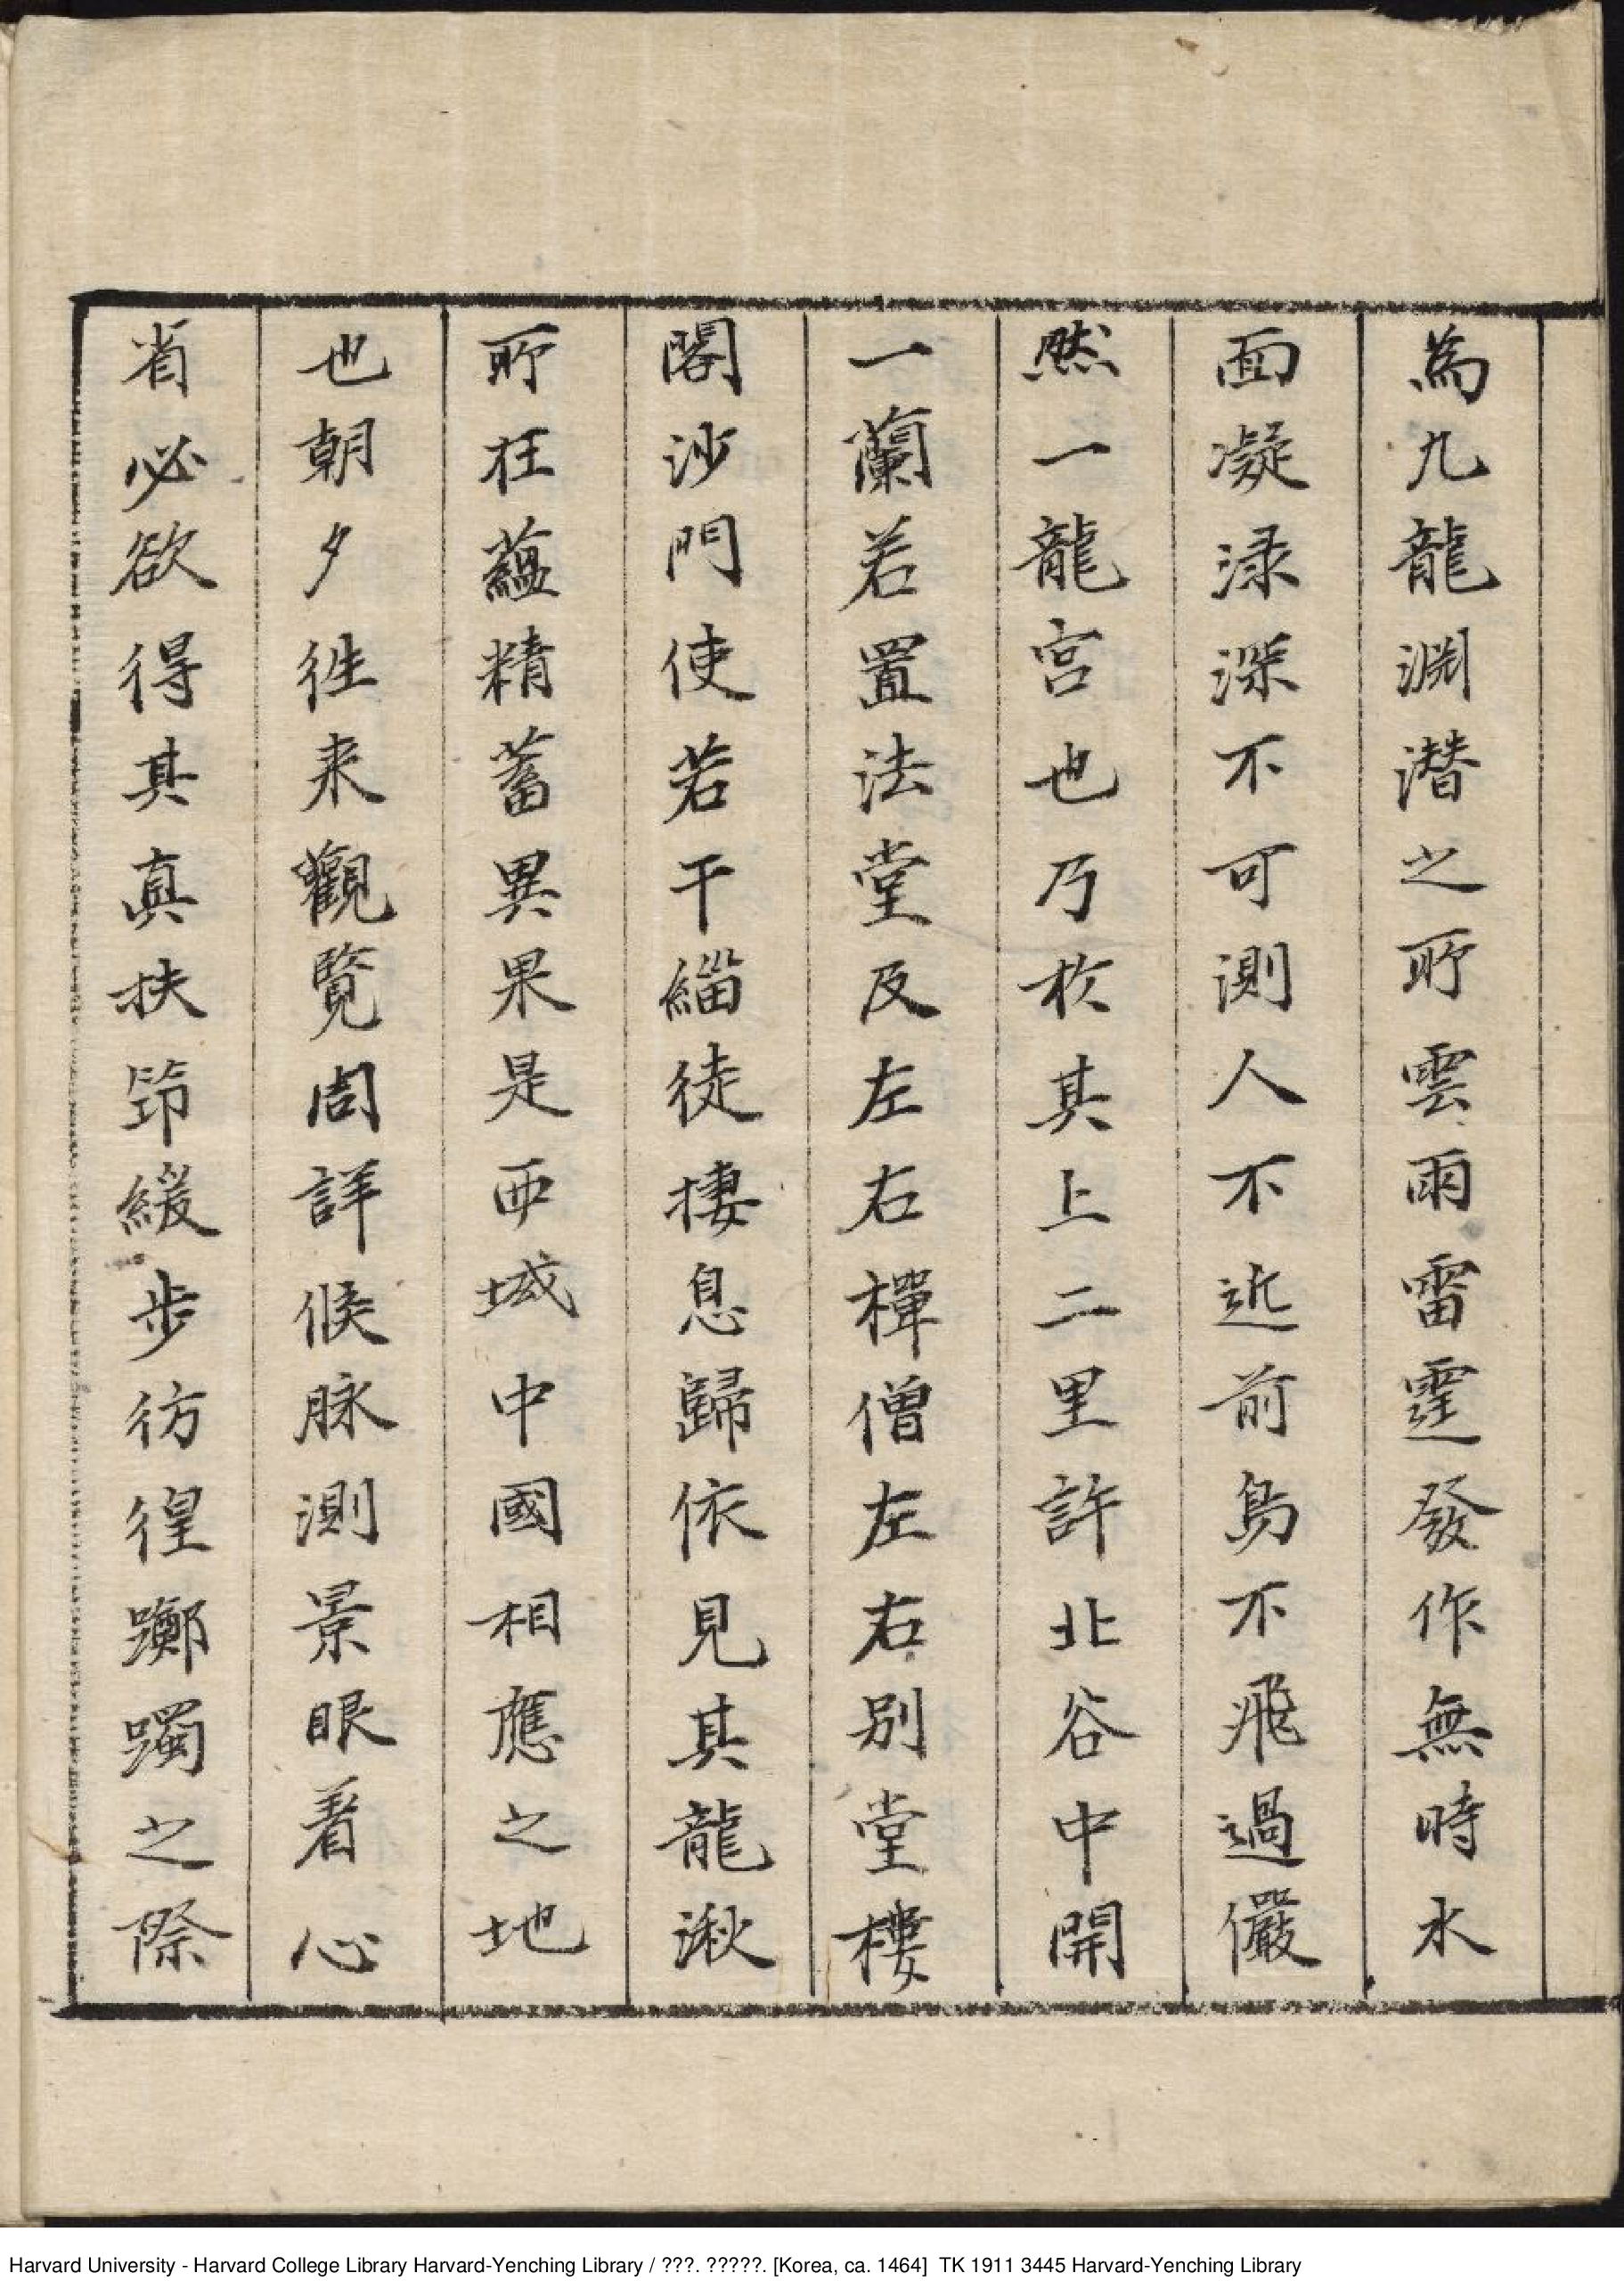 為九龍淵潜之所雲雨雷霆發作無時水
面凝渌深不可測人不近前鳥不飛過儼
然一龍宮也乃於其上二里許北谷中開
一蘭若置法堂及左右禪僧左右別堂樓
閣沙門使若干緇徒棲息歸依見其龍湫
所在蘊精蓄異果是西域中國相應之地
也朝夕徃来觀覧周詳候脉測景眼着心
省必欲得其真扶筇緩步彷徨躑躅之際
Harvard University - Harvard College Library Harvard-Yenching Library / ???. ?????. [Korea, ca. 1464] TK 1911 3445 Harvard-Yenching Library